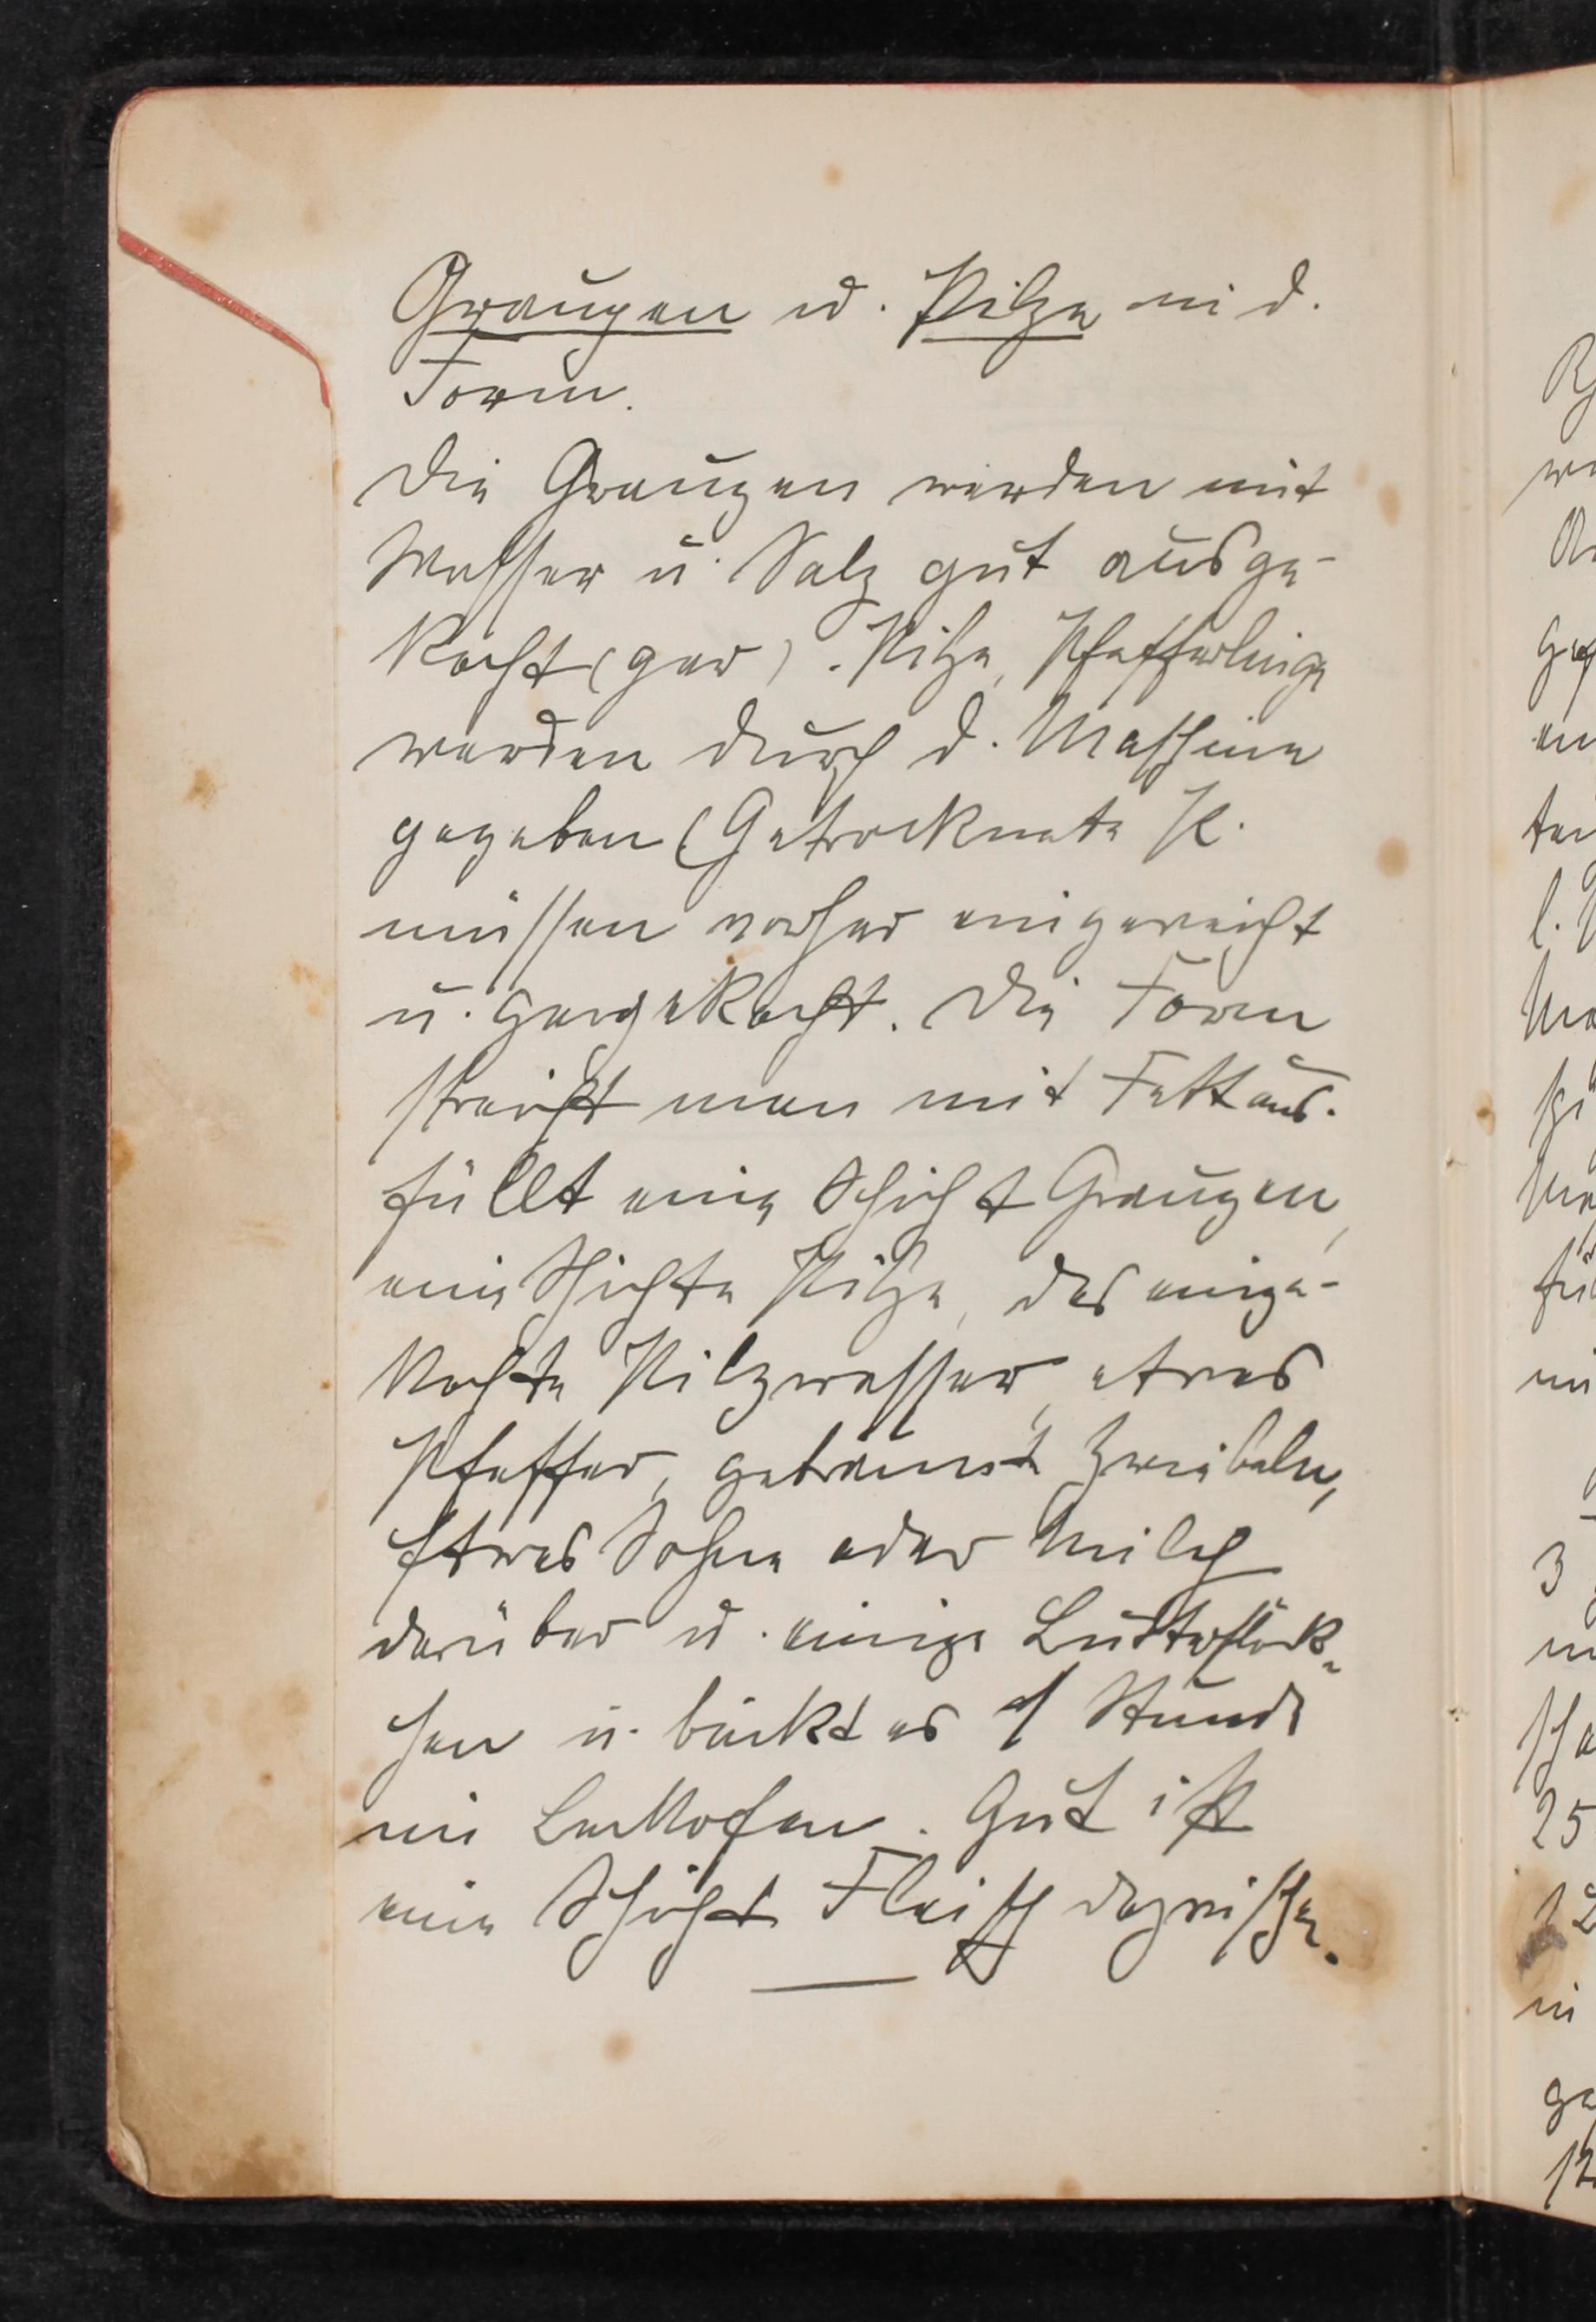 Graupen u. Pilze in d.
Form.
Die Graupen werden mit
Wasser u. Salz gut ausge-
kocht (gar). Pilze, Pfefferlinge
werden durch d. Maschine
gegeben (Getrocknete P.
müssen vorher eingeweicht
u. gargekocht. Die Form
streicht man mit Fett aus.
füllt eine Schicht Graupen,
eine Schichte Pilze, das einge-
kochte Pilzwasser, etwas
Pfeffer, gebräunte Zwiebeln,
Etwas Sahne oder Milch
darüber u. einige Butterflöck-
chen u. bäckt es 1 Stunde
im Backofen. Gut ist
eine Schicht Fleisch dazwischen.